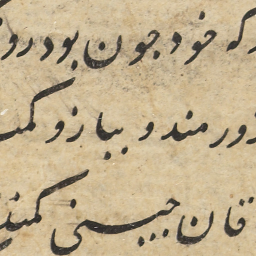 که خود چون بود رو
زورمند و ببازو کمن
قان جیبی کمند